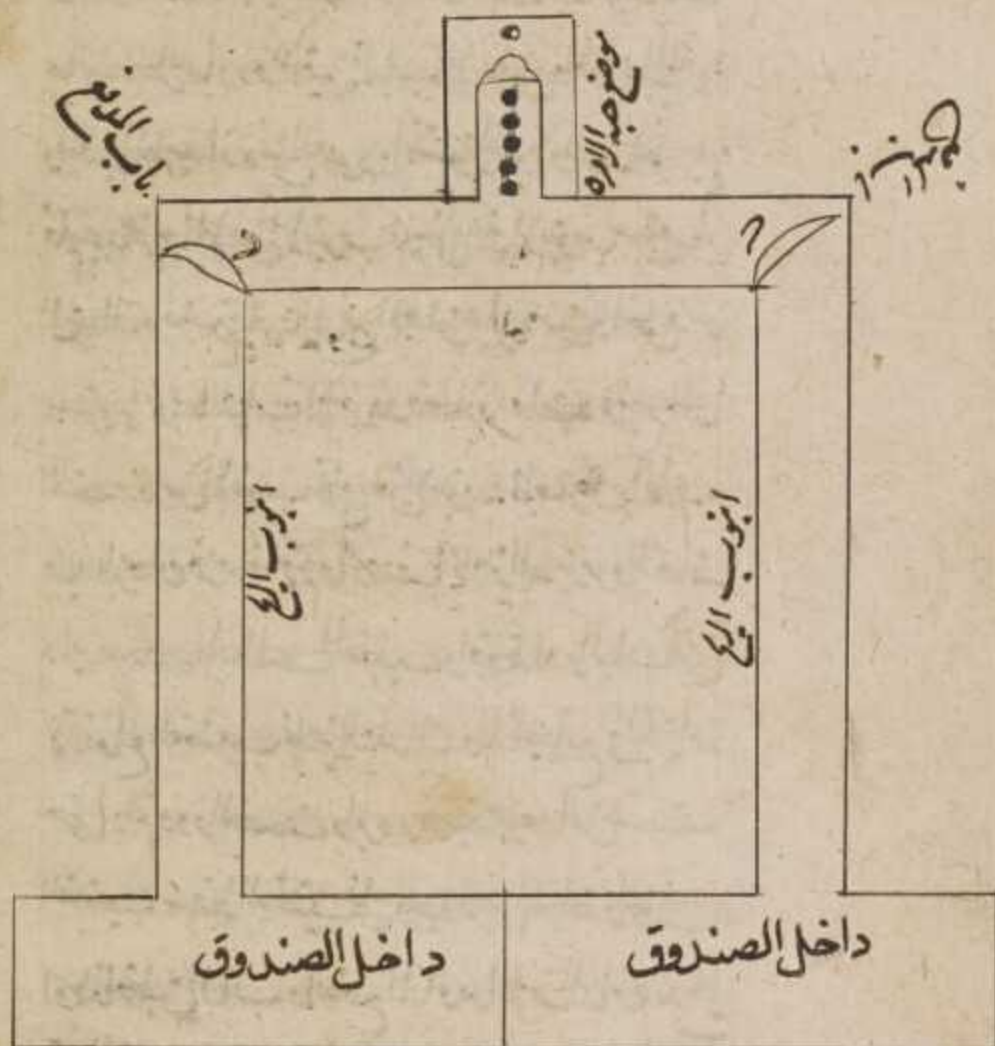 باب المدفع
موضع حبة الاوره
انبوب الريح
انبوب الريح
داخل الصندوق
داخل الصندوق